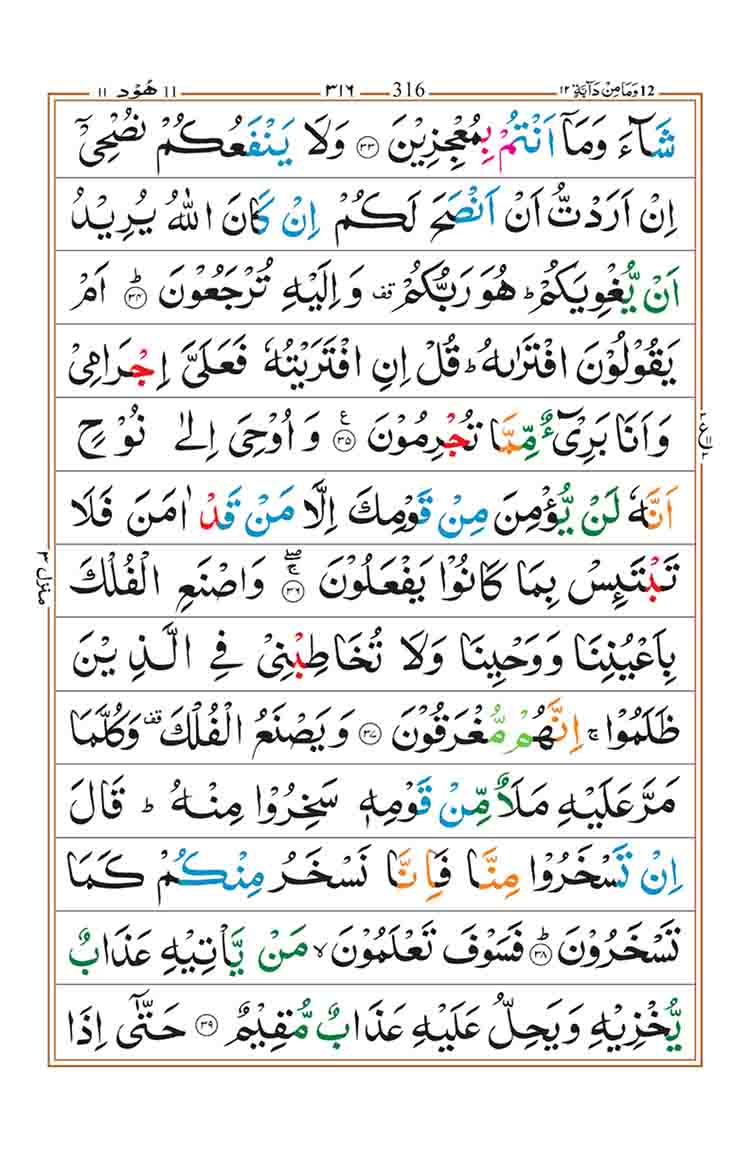 12 وَمَا مِنْ دَآبَّةٍ ۱۲ 316 ۳۱۶ 11 هُوْد ۱۱
شَآءَ وَمَاۤ اَنْتُمْ بِمُعْجِزِيْنَ ﴿۳۳﴾ وَلَا يَنْفَعُكُمْ نُصْحِيْۤ
اِنْ اَرَدْتُّ اَنْ اَنْصَحَ لَكُمْ اِنْ كَانَ اللّٰهُ يُرِيْدُ
اَنْ يُّغْوِيَكُمْ ؕ هُوَ رَبُّكُمْ قف وَاِلَيْهِ تُرْجَعُوْنَ ﴿ؕ۳۴﴾ اَمْ
يَقُوْلُوْنَ افْتَرٰىهُ ؕ قُلْ اِنِ افْتَرَيْتُهٗ فَعَلَيَّ اِجْرَامِيْ
وَاَنَا بَرِيْٓءٌ مِّمَّا تُجْرِمُوْنَ ﴿۳۵﴾ ع وَاُوْحِيَ اِلٰى نُوْحٍ
اَنَّهٗ لَنْ يُّؤْمِنَ مِنْ قَوْمِكَ اِلَّا مَنْ قَدْ اٰمَنَ فَلَا
تَبْتَئِسْ بِمَا كَانُوْا يَفْعَلُوْنَ ﴿ۚۖ۳۶﴾ وَاصْنَعِ الْفُلْكَ
بِاَعْيُنِنَا وَوَحْيِنَا وَلَا تُخَاطِبْنِيْ فِي الَّذِيْنَ
ظَلَمُوْا ۚ اِنَّهُمْ مُّغْرَقُوْنَ ﴿۳۷﴾ وَيَصْنَعُ الْفُلْكَ قف وَكُلَّمَا
مَرَّ عَلَيْهِ مَلَاٌ مِّنْ قَوْمِهٖ سَخِرُوْا مِنْهُ ؕ قَالَ
اِنْ تَسْخَرُوْا مِنَّا فَاِنَّا نَسْخَرُ مِنْكُمْ كَمَا
تَسْخَرُوْنَ ﴿ؕ۳۸﴾ فَسَوْفَ تَعْلَمُوْنَ ۙ مَنْ يَّاْتِيْهِ عَذَابٌ
يُّخْزِيْهِ وَيَحِلُّ عَلَيْهِ عَذَابٌ مُّقِيْمٌ ﴿۳۹﴾ حَتّٰۤى اِذَا
ع
منزل ۳